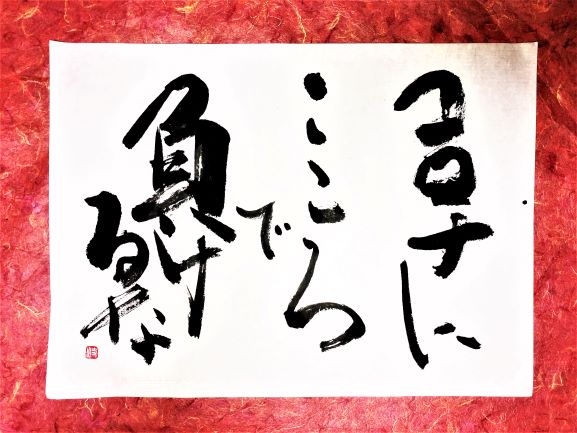 コロナに
こころで
負け
るな